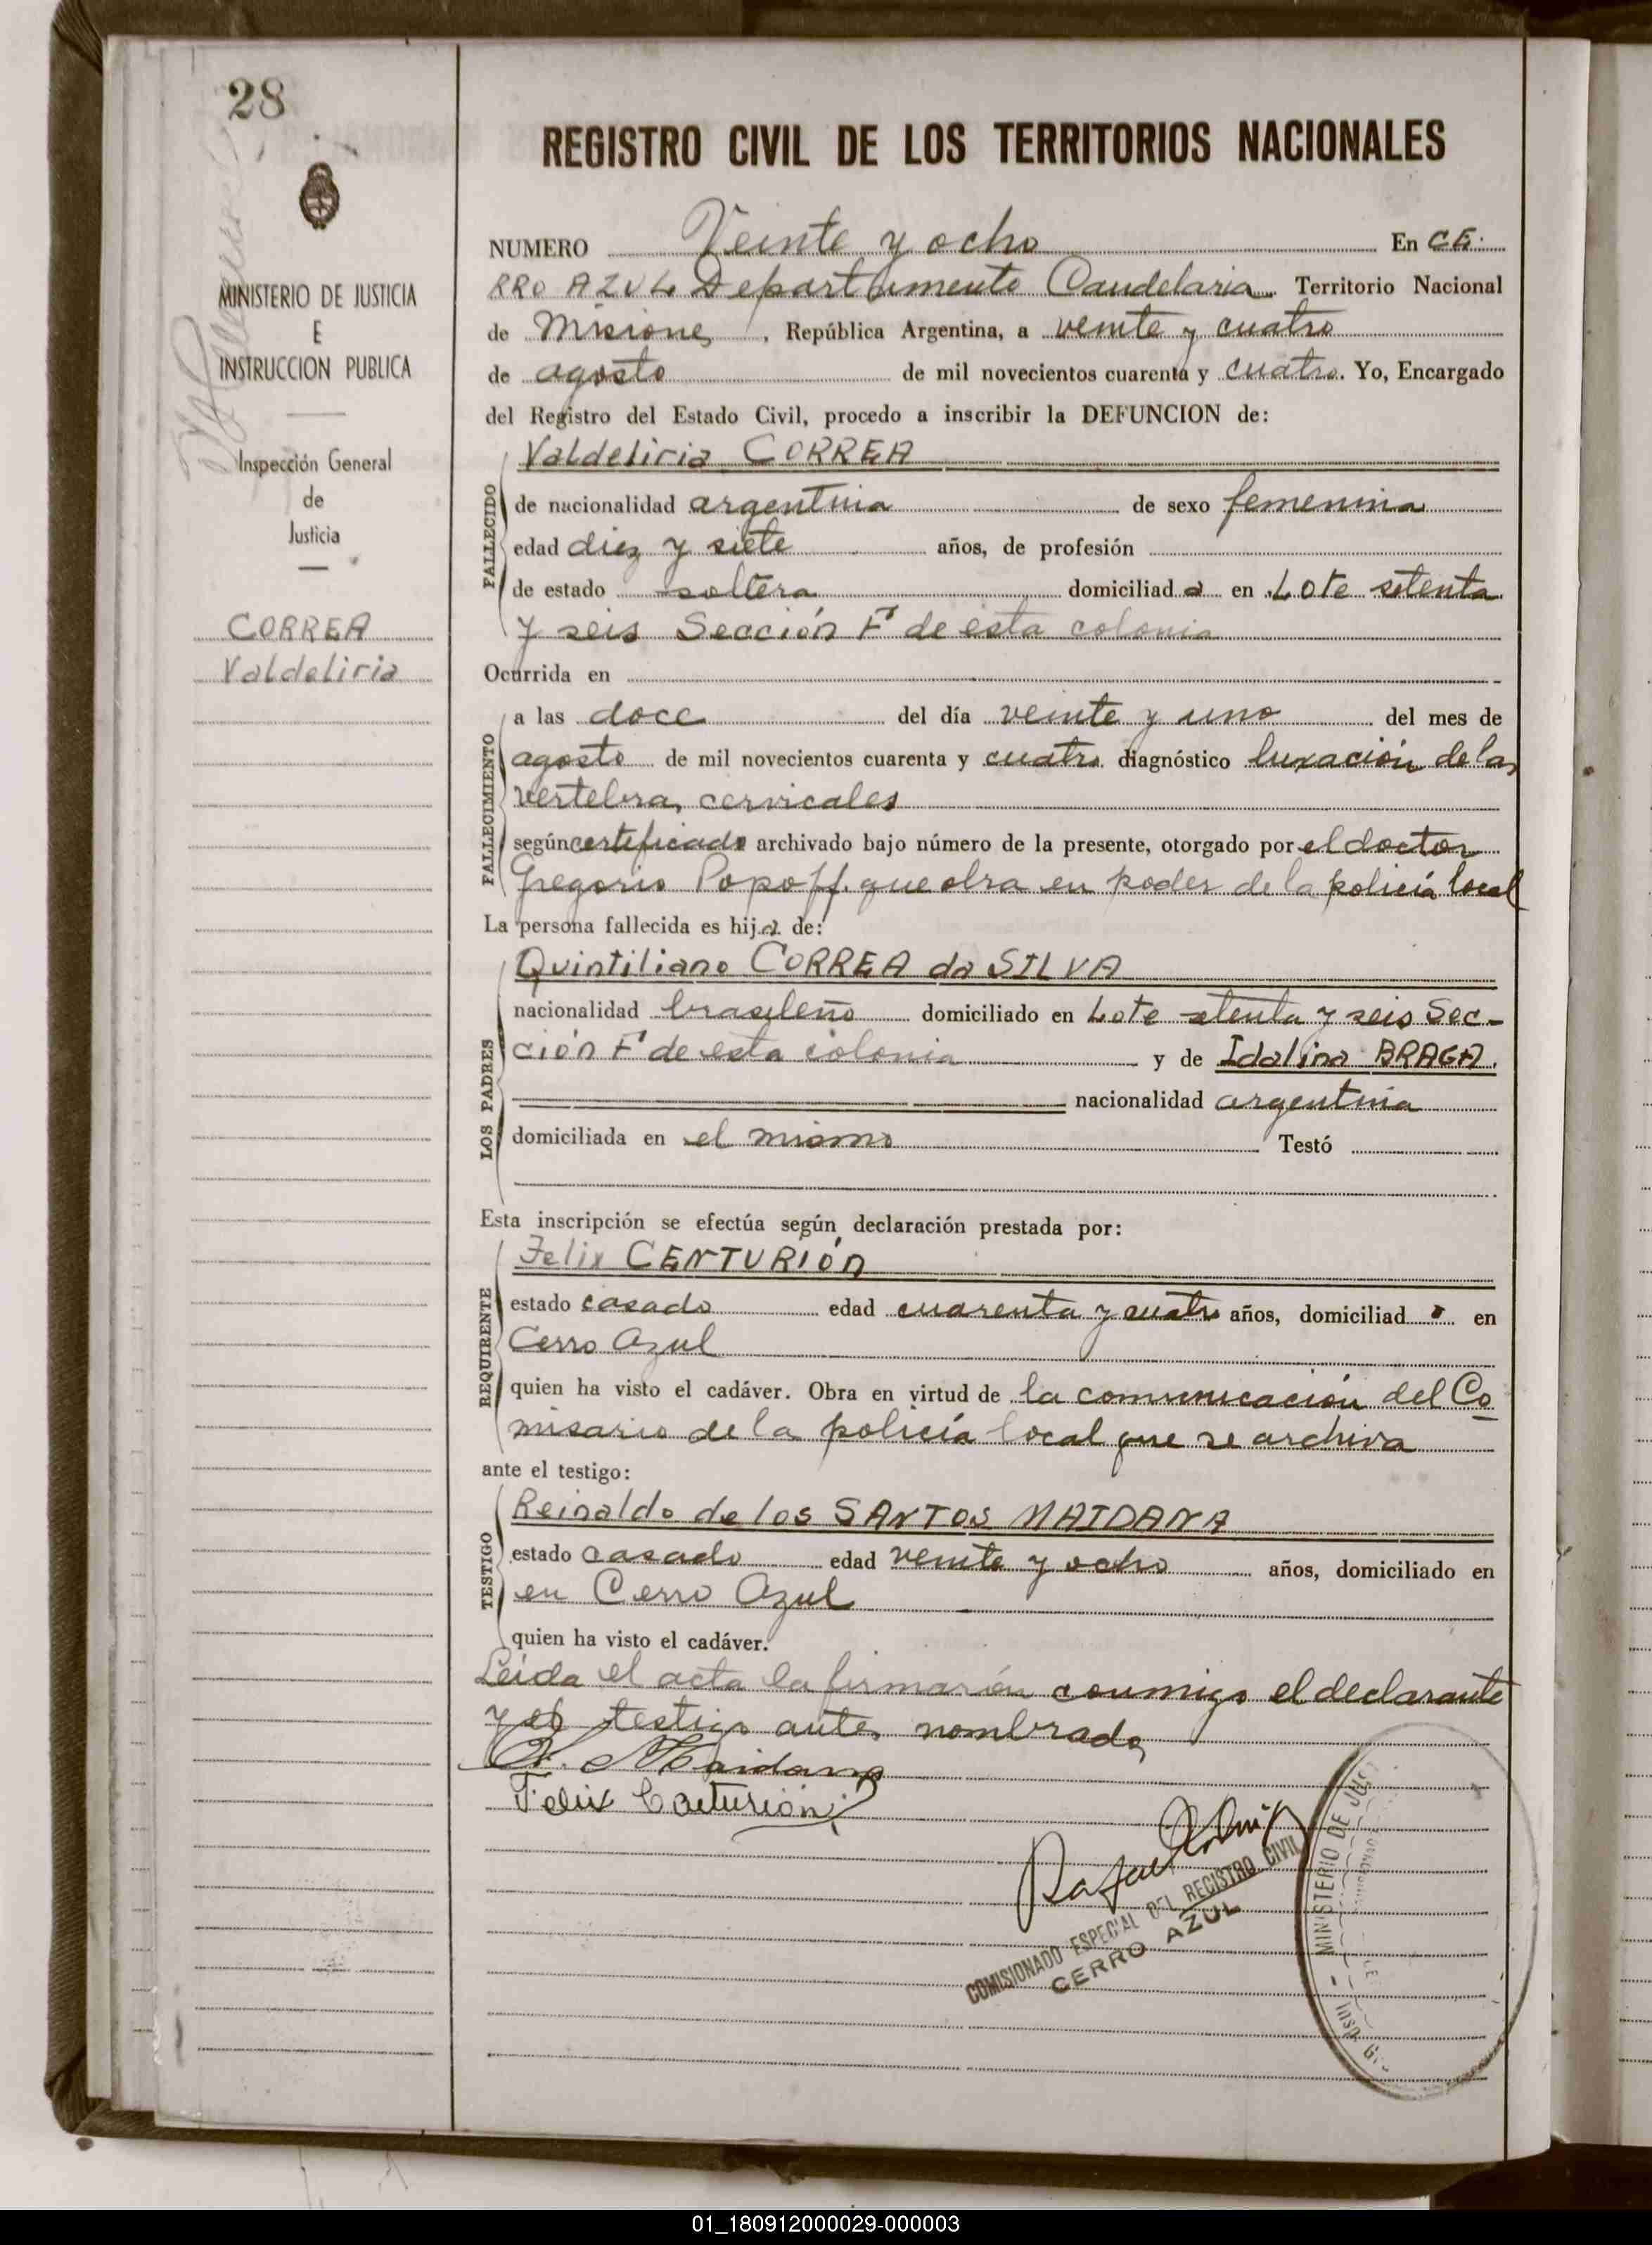 28
REGISTRO CIVIL DE LOS TERRITORIOS NACIONALES
MINISTERIO DE JUSTICIA
E
INSTRUCCION PUBLICA
Inspección General
de
Justicia
CORREA
Valdeliria
NUMERO Veinte y ocho En CE-
RRO AZUL Departamento Candelaria Territorio Nacional
de Misiones, República Argentina, a veinte y cuatro
de agosto de mil novecientos cuarenta y cuatro. Yo, Encargado
del Registro del Estado Civil, procedo a inscribir la DEFUNCION de:
Valdeliria CORREA
FALLECIDO
de nacionalidad argentina de sexo femenina
edad diez y siete años, de profesión
de estado soltera domiciliad a en Lote setenta
y seis Sección F de esta colonia
Ocurrida en
FALLECIMIENTO
a las doce del día veinte y uno del mes de
agosto de mil novecientos cuarenta y cuatro diagnóstico luxación de las
vertebras cervicales
según certificado archivado bajo número de la presente, otorgado por el doctor
Gregorio Popoff que obra en poder de la policía local
La persona fallecida es hija de:
LOS PADRES
Quintiliano CORREA da SILVA
nacionalidad brasileño domiciliado en Lote setenta y seis Sec-
ción F de esta colonia y de Idalina BRAGA.
nacionalidad argentina
domiciliada en el mismo Testó
Esta inscripción se efectúa según declaración prestada por:
REQUIRENTE
Felix CENTURIÓN
estado casado edad cuarenta y cuatro años, domiciliad o en
Cerro Azul
quien ha visto el cadáver. Obra en virtud de la comunicación del Co
misario de la policía local que se archiva
ante el testigo:
TESTIGO
Reinaldo de los SANTOS MAIDANA
estado casado edad veinte y ocho años, domiciliado en
en Cerro Azul
quien ha visto el cadáver.
Leída el acta la firmarón conmigo el declarante
y el testigo antes nombrado
R. Maidana
Felix Centurión
Rafael
COMISIONADO ESPECIAL DEL REGISTRO CIVIL
CERRO AZUL
MINISTERIO DE JUST
01_180912000029-000003